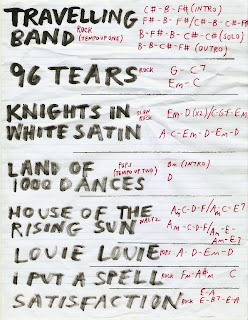 TRAVELLING C#-B-F# (INTRO)
BAND ROCK (TEMPO UP ONE) F#-B-F#/C#-B-C#-F#
B-F#-B-C#-C# (SOLO)
B-B-C#-F# (OUTRO)
96 TEARS ROCK G-C7
Em-C
KNIGHTS IN SLOW ROCK Em-D (x2)/C-G-F-Em
WHITE SATIN A-C-Em-D-Em-D
LAND OF POPS (TEMPO UP TWO) Bm (INTRO)
1000 DANCES D
HOUSE OF THE WALTZ Am-C-D-F/Am-C-E7
RISING SUN Am-C-D-F/Am-E-
Am-E7
LOUIE LOUIE POPS A-D-Em-D
I PUT A SPELL ROCK Fm-A#m C
SATISFACTION ROCK E-A
E-B7-E-A